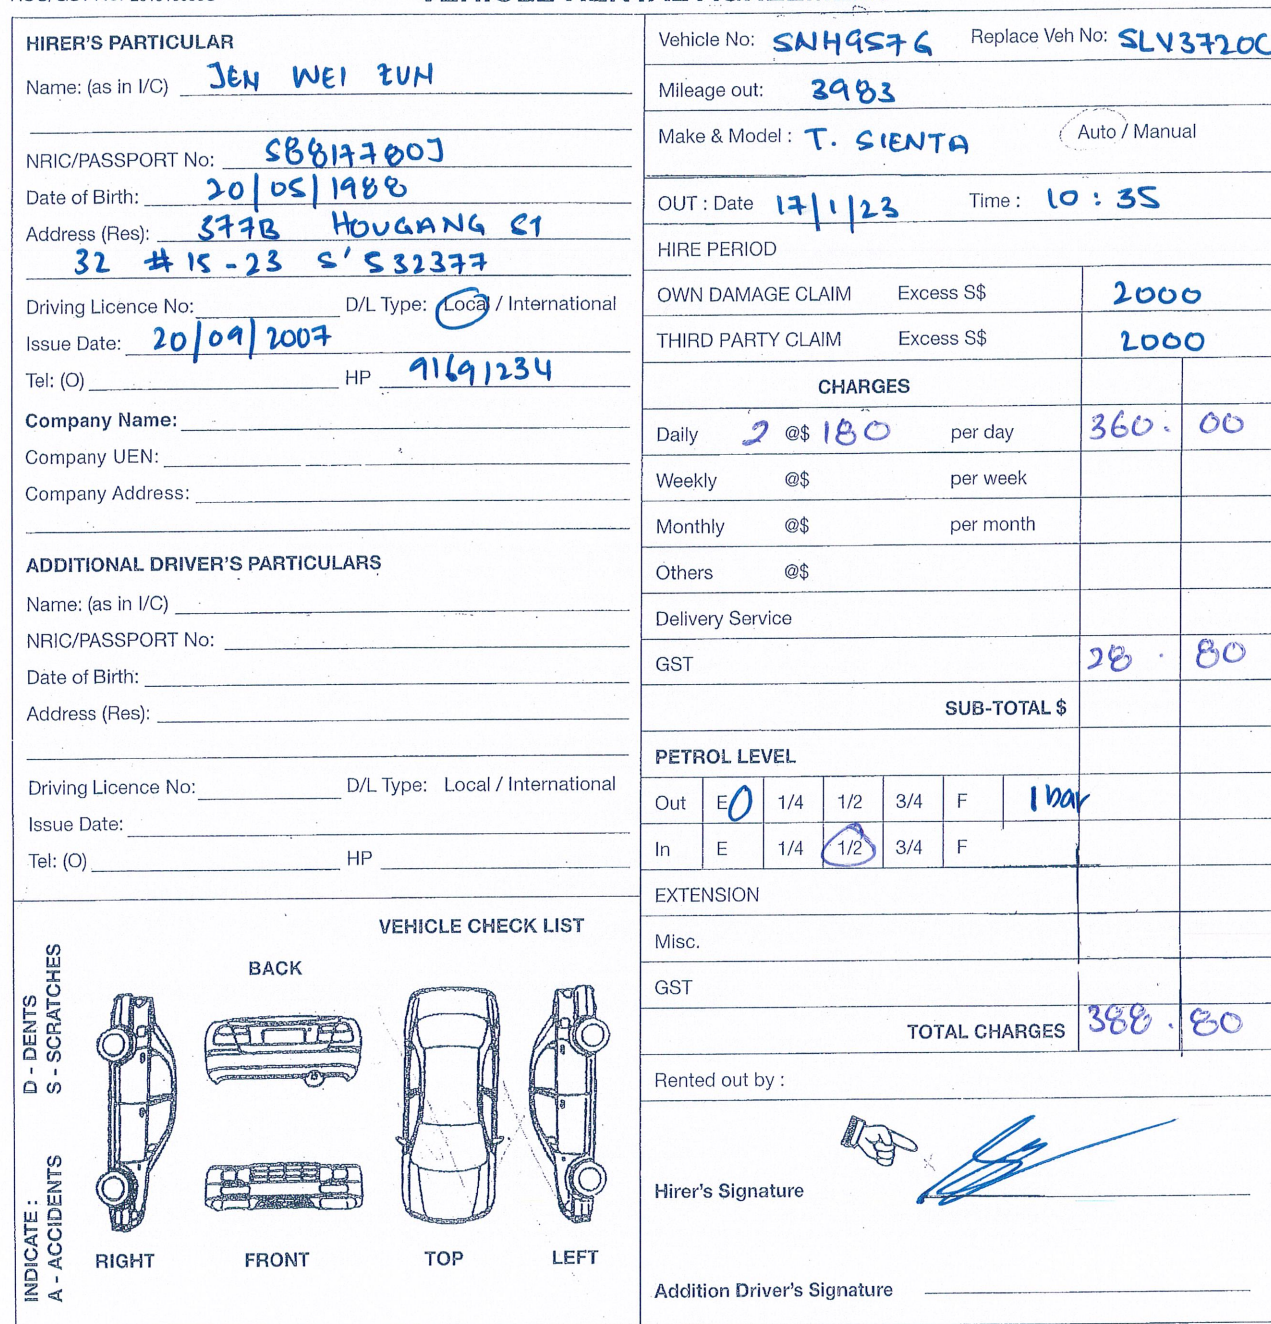 HIRER'S PARTICULAR
Name: (as in I/C) JEN WEI ZUN
NRIC/PASSPORT No: S8817780J
Date of Birth: 20/05/1988
Address (Res): 377B HOUGANG ST
32 #15-23 S'532377
Driving Licence No: D/L Type: Local / International
Issue Date: 20/09/2007
Tel: (O) HP 91691234
Company Name:
Company UEN:
Company Address:
ADDITIONAL DRIVER'S PARTICULARS
Name: (as in I/C)
NRIC/PASSPORT No:
Date of Birth:
Address (Res):
Driving Licence No: D/L Type: Local / International
Issue Date:
Tel: (O) HP
VEHICLE CHECK LIST
INDICATE : D - DENTS
A - ACCIDENTS S - SCRATCHES
BACK
RIGHT FRONT TOP LEFT
Vehicle No: SNH9576G Replace Veh No: SLV3720C
Mileage out: 3983
Make & Model : T. SIENTA Auto / Manual
OUT : Date 17/1/23 Time : 10:35
HIRE PERIOD
OWN DAMAGE CLAIM Excess S$ 2000
THIRD PARTY CLAIM Excess S$ 2000
CHARGES
Daily 2 @$ 180 per day 360. 00
Weekly @$ per week
Monthly @$ per month
Others @$
Delivery Service
GST 28 . 80
SUB-TOTAL $
PETROL LEVEL
Out E 1/4 1/2 3/4 F 1 bar
In E 1/4 1/2 3/4 F
EXTENSION
Misc.
GST
TOTAL CHARGES 388 . 80
Rented out by :
Hirer's Signature
Addition Driver's Signature